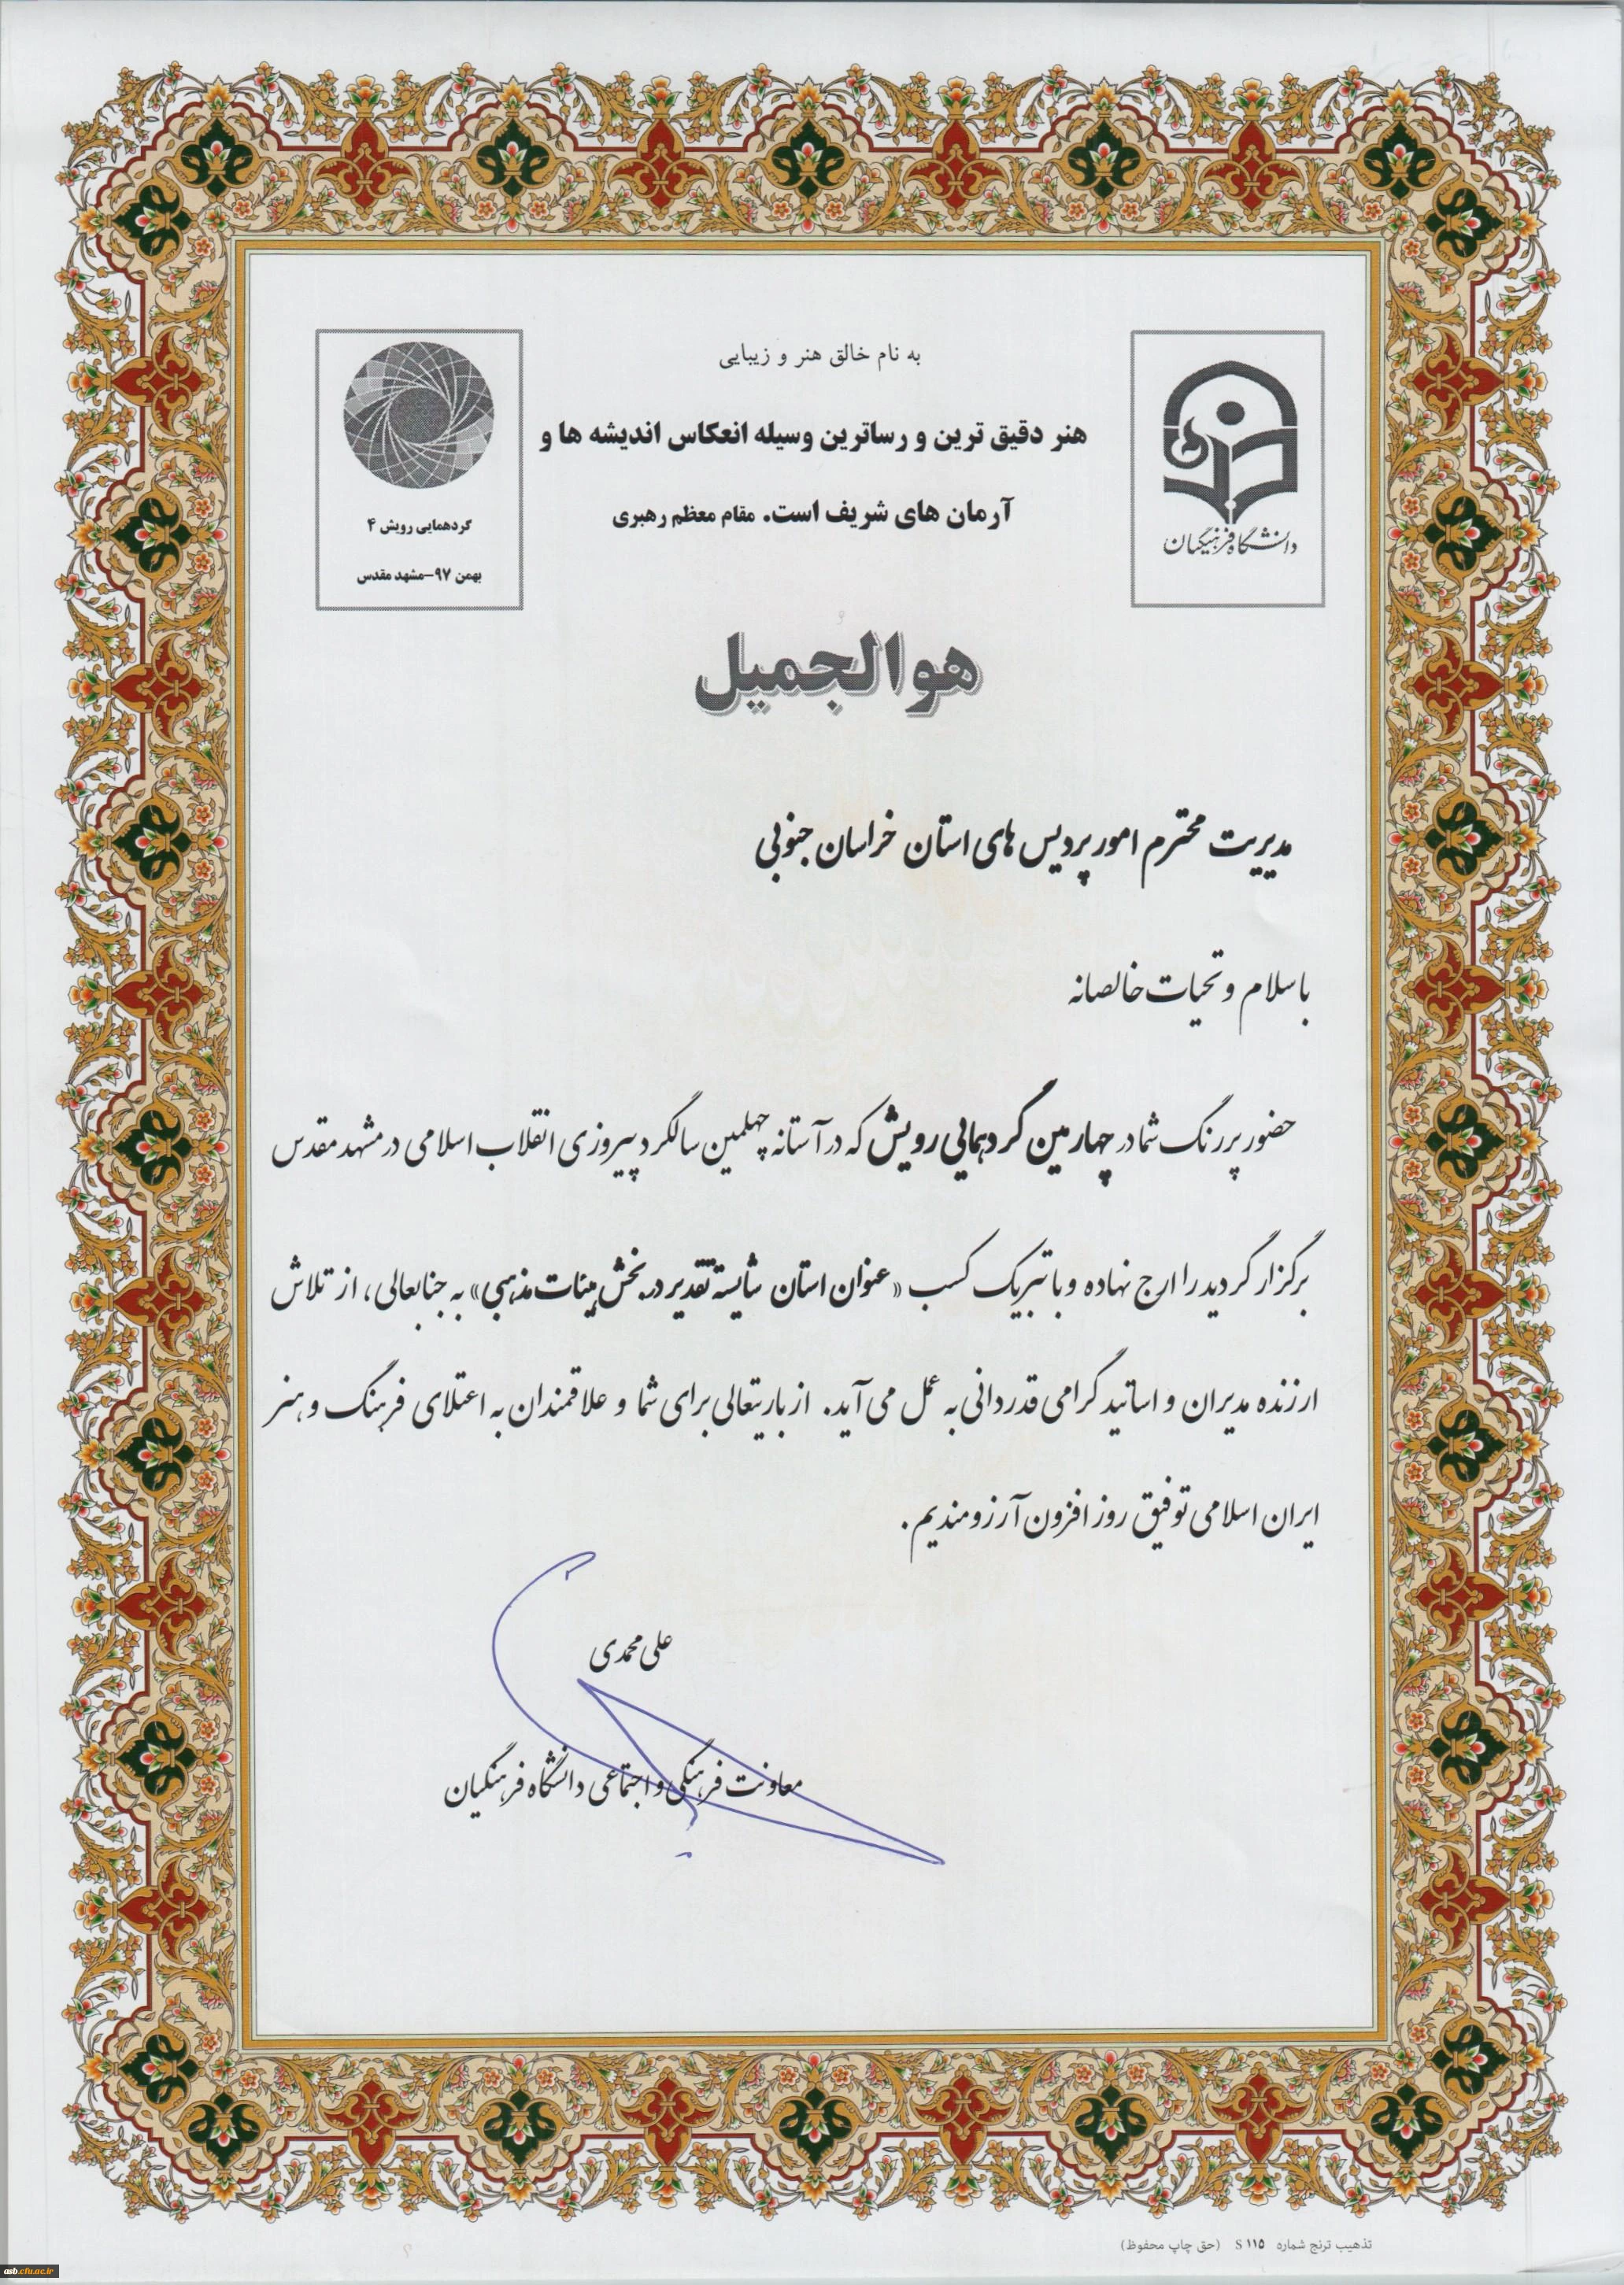 به نام خالق هنر و زیبایی
هنر دقیق ترین و رساترین وسیله انعکاس اندیشه ها و
آرمان های شریف است. مقام معظم رهبری
دانشگاه فرهنگیان
گردهمایی رویش ۴
بهمن ۹۷-مشهد مقدس
هوالجمیل
مدیریت محترم امور پردیس های استان خراسان جنوبی
باسلام و تحیات خالصانه
حضور پررنگ شما در چهارمین گردهمایی رویش که در آستانه چهلمین سالگرد پیروزی انقلاب اسلامی در مشهد مقدس
برگزار گردید را ارج نهاده و با تبریک کسب «عنوان استان شایسته تقدیر در بخش هیئات مذهبی» به جنابعالی، از تلاش
ارزنده مدیران و اساتید گرامی قدردانی به عمل می آید. از باریتعالی برای شما و علاقمندان به اعتلای فرهنگ و هنر
ایران اسلامی توفیق روز افزون آرزومندیم.
علی محمدی
معاونت فرهنگی و اجتماعی دانشگاه فرهنگیان
تذهیب ترنج شماره S ۱۱۵ (حق چاپ محفوظ)
asb.cfu.ac.ir